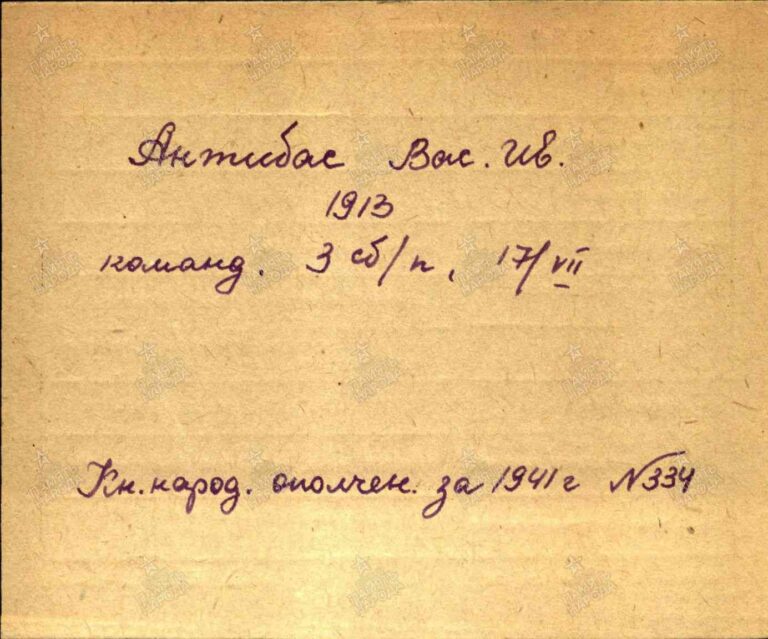 Антибас Вас. Ив.
1913
команд. 3 сб/п, 17/VII
Кн. народ. ополчен. за 1941г №334